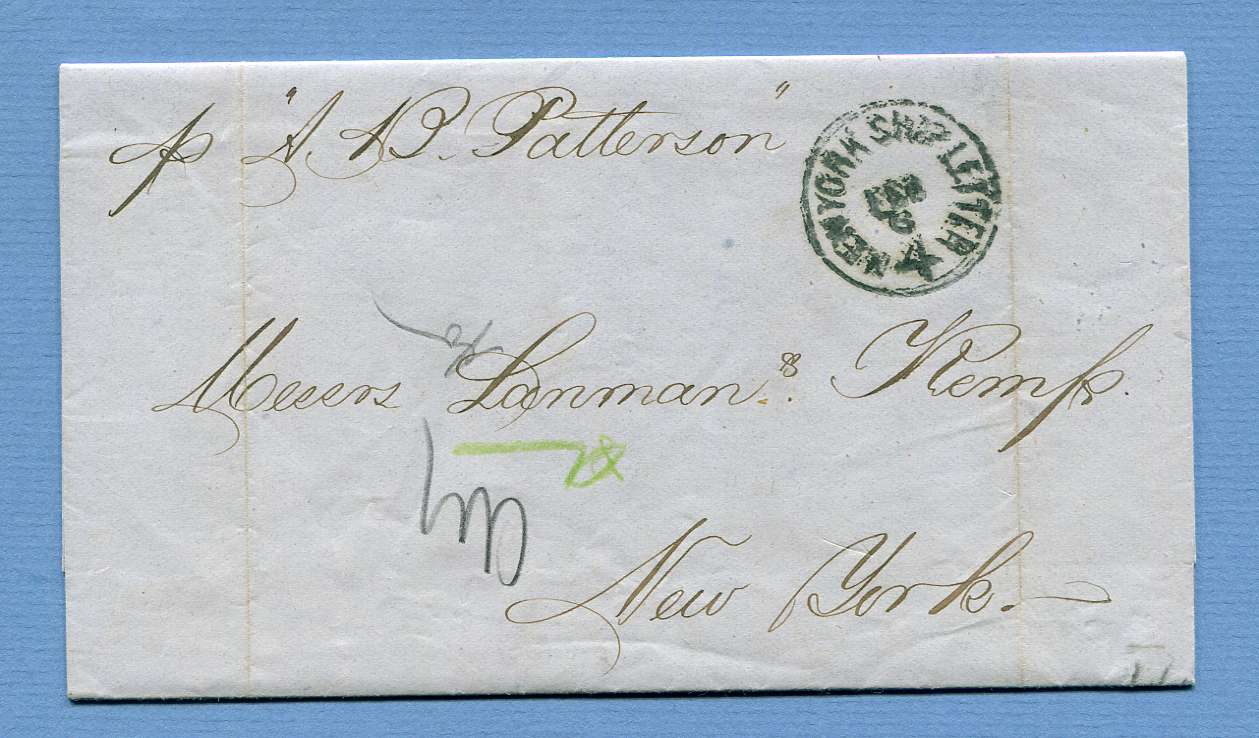 p "A. B. Patterson"
NEW YORK SHIP LETTER
FEB
4
Messrs Lanman & Kemp.
New York.